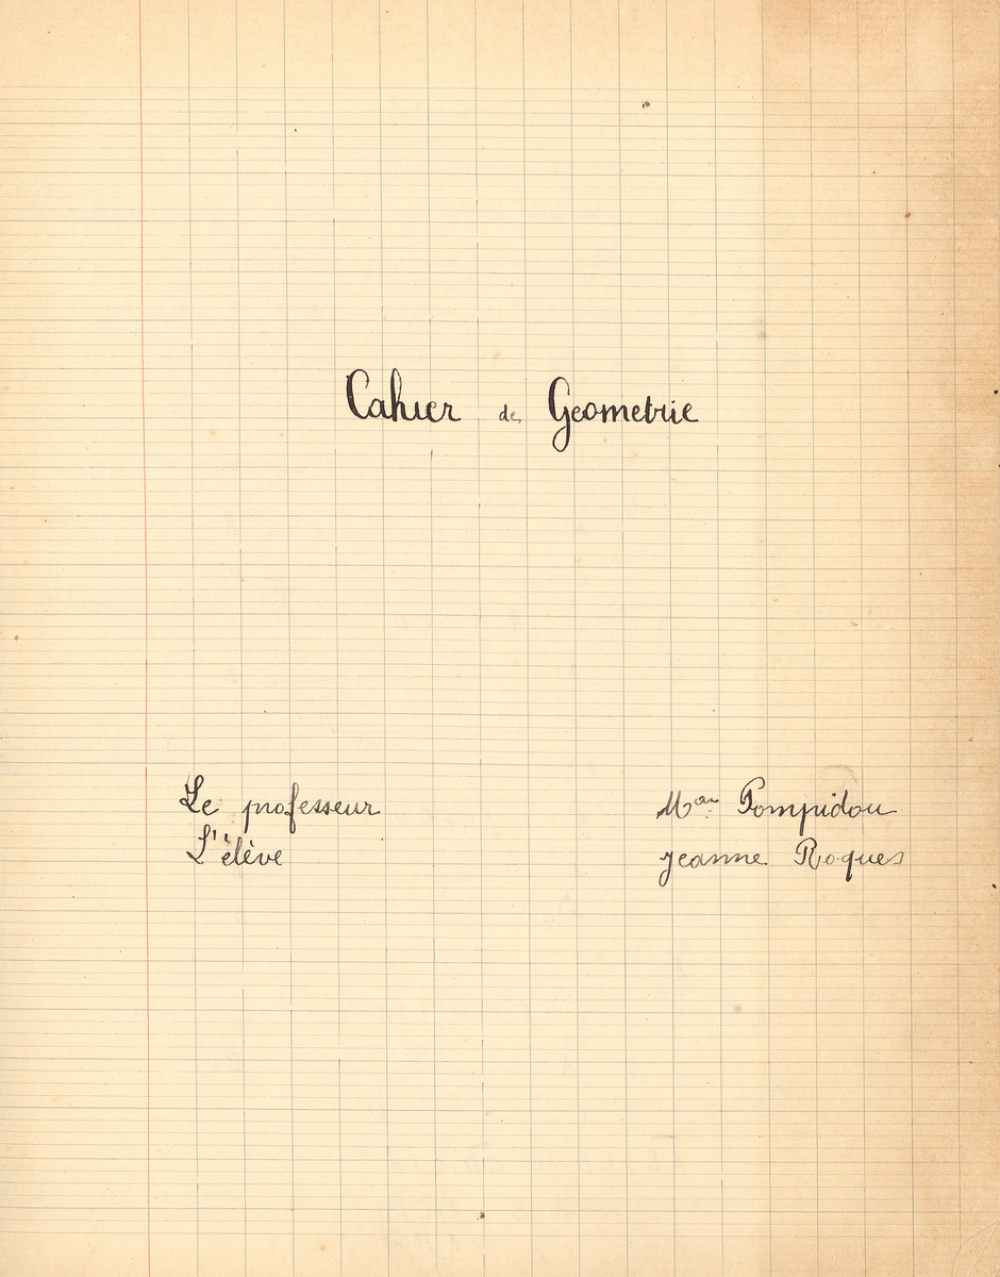 Cahier de Geometrie
Le professeur Pompidou
L'élève Jeanne Roques